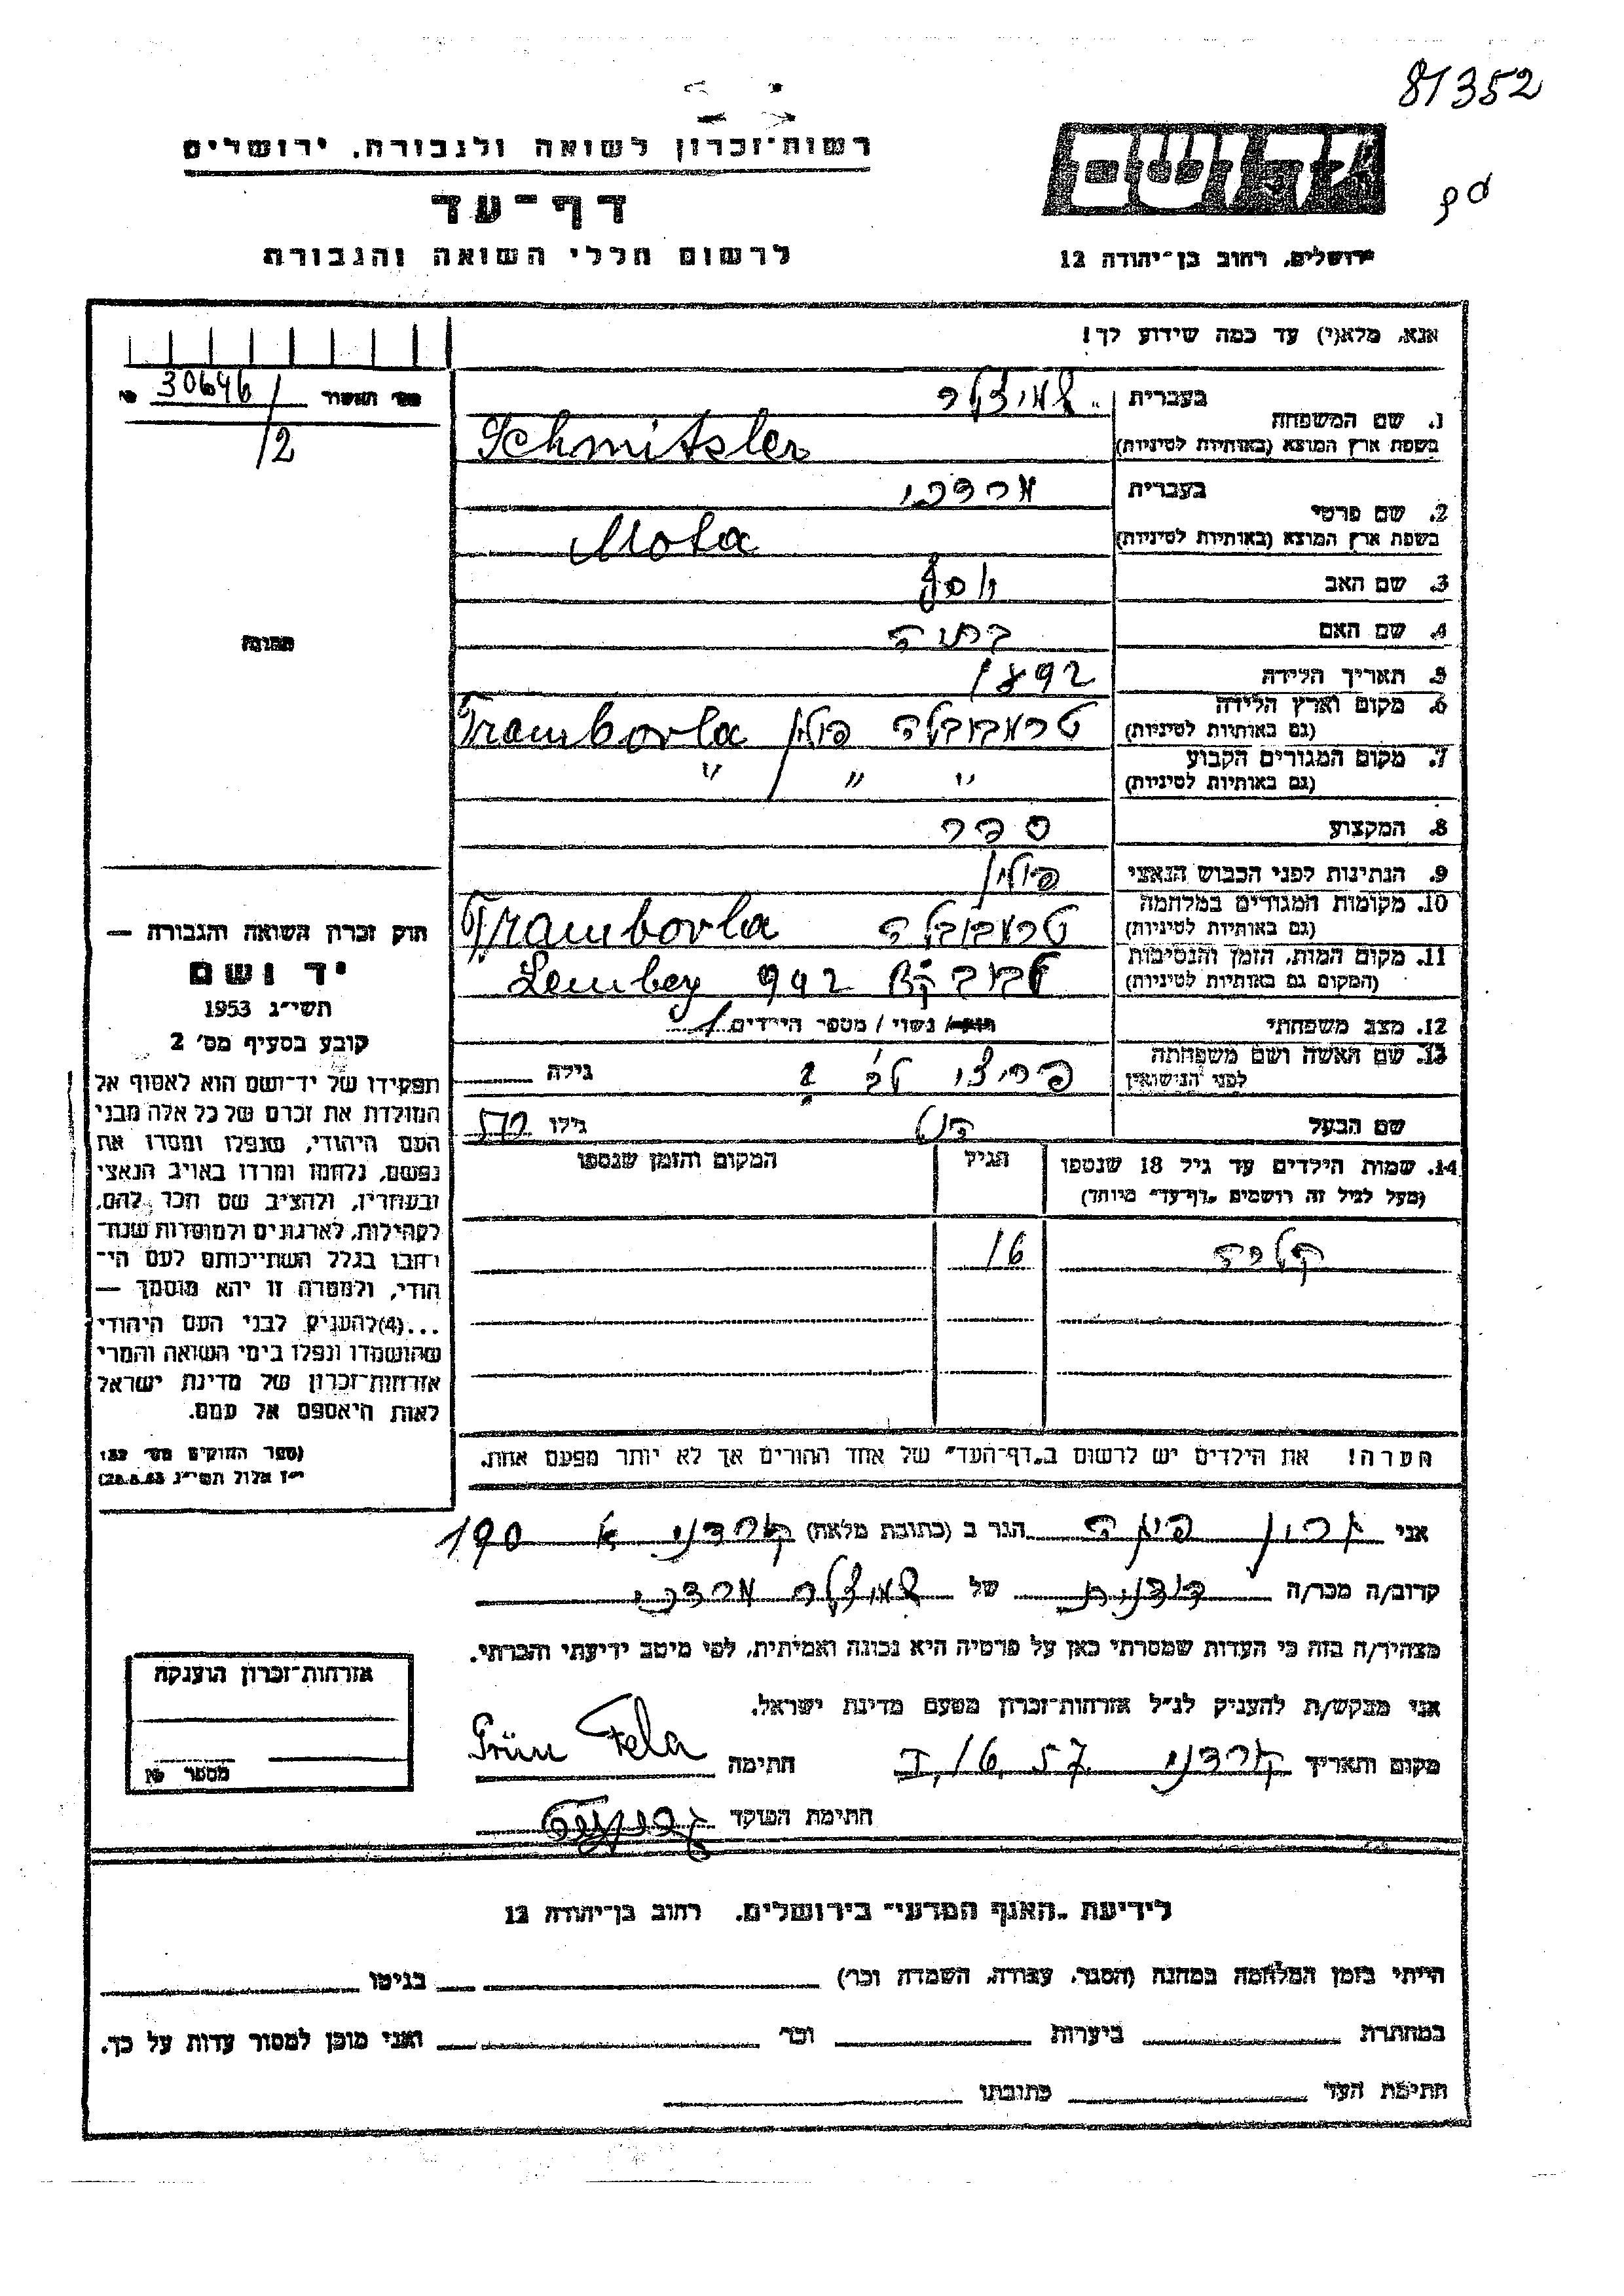 81352
רשות־זכרון לשואה ולגבורה, ירושלים
דף־עד
לרשום חללי השואה והגבורה
יד ושם
ירושלים, רחוב בן־יהודה 12
אנא, מלא(י) עד כמה שידוע לך!
30646/12
1. שם המשפחה
בעברית
בשפת ארץ המוצא (באותיות לטיניות)
Schmitsler
2. שם פרטי
בעברית מרדכי
בשפת ארץ המוצא (באותיות לטיניות)
Mota
3. שם האב יוסף
4. שם האם
5. תאריך הלידה 1892
6. מקום וארץ הלידה
(גם באותיות לטיניות)
טרמבובלה פולין Trambovla
7. מקום המגורים הקבוע
(גם באותיות לטיניות)
" " / "
8. המקצוע ספר
9. הנתינות לפני הכבוש הנאצי פולין
10. מקומות המגורים במלחמה
(גם באותיות לטיניות)
טרמבובלה Trambovla
11. מקום המות, הזמן והנסיבות
(המקום גם באותיות לטיניות)
942
12. מצב משפחתי
רווק / נשוי / מספר הילדים 1
13. שם האשה ושם משפחתה
לפני הנישואין
גילה
שם הבעל
גילו
14. שמות הילדים עד גיל 18 שנספו
(מעל לגיל זה רושמים „דף־עד" מיוחד)
הגיל
המקום והזמן שנספו
16
הערה! את הילדים יש לרשום ב„דף־העד" של אחד ההורים אך לא יותר מפעם אחת.
תמונה
חוק זכרון השואה והגבורה —
יד ושם
תשי"ג 1953
קובע בסעיף מס' 2
תפקידו של יד־ושם הוא לאסוף אל
המולדת את זכרם של כל אלה מבני
העם היהודי, שנפלו ומסרו את
נפשם, נלחמו ומרדו באויב הנאצי
ובעוזריו, ולהציב שם וזכר להם,
לקהילות, לארגונים ולמוסדות שנח־
רבו בגלל השתייכותם לעם הי־
הודי, ולמטרה זו יהא מוסמך —
...(4) להעניק לבני העם היהודי
שהושמדו ונפלו בימי השואה והמרי
אזרחות־זכרון של מדינת ישראל
לאות היאספם אל עמם.
(ספר החוקים מס' 132,
י"ז אלול תשי"ג 28.8.53)
אני גרון פלה הגר ב (כתובת מלאה)
קרוב/ה מכר/ה של מרדכי
מצהיר/ה בזה כי העדות שמסרתי כאן על פרטיה היא נכונה ואמיתית, לפי מיטב ידיעתי והכרתי.
אני מבקש/ת להעניק לנ"ל אזרחות־זכרון מטעם מדינת ישראל.
מקום ותאריך חתימה Grün Fela
חתימת הפוקד
אזרחות־זכרון הוענקה
מספר №
לידיעת „האגף המדעי" בירושלים, רחוב בן־יהודה 12
הייתי בזמן המלחמה במחנה (הסגר, עבודה, השמדה וכו') בגיטו
במחתרת ביערות וכו' ואני מוכן למסור עדות על כך.
חתימת העד כתובתו